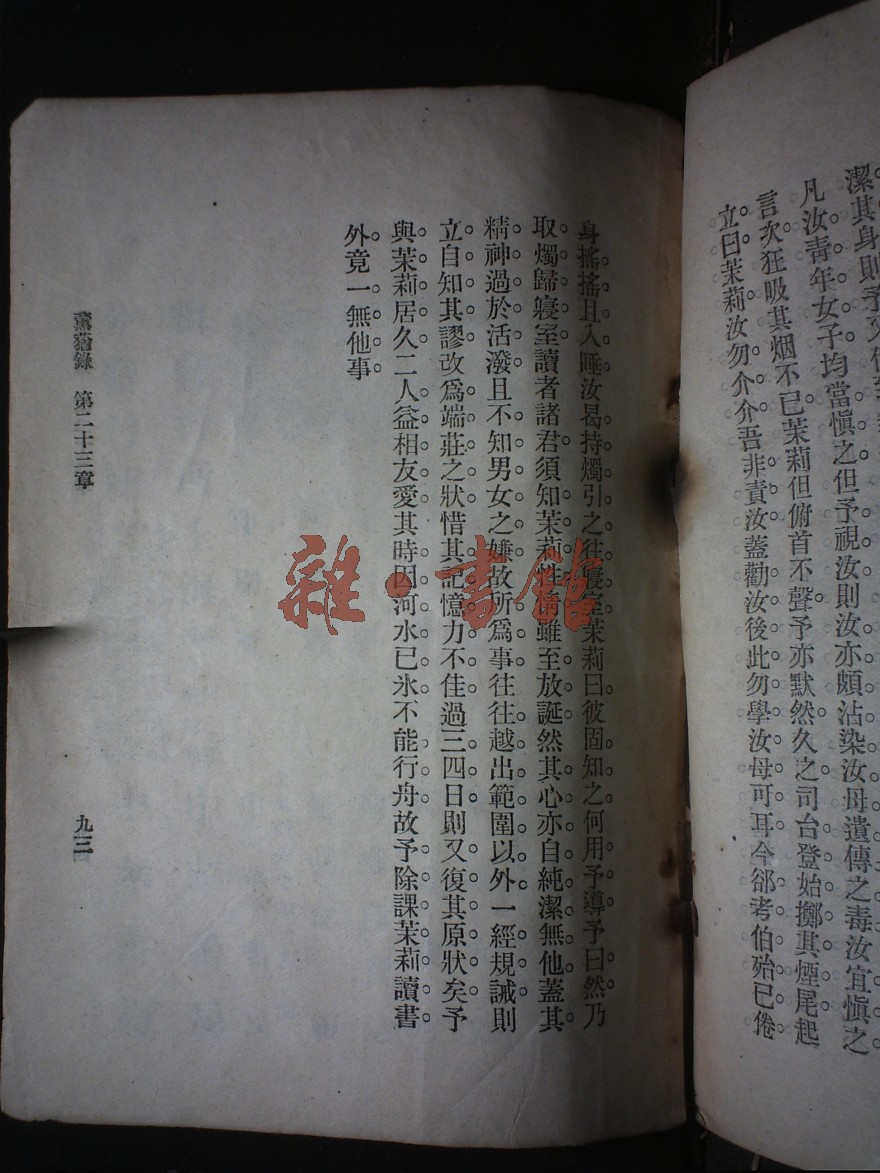 潔其身則予
凡汝青年女子均當慎之但予視汝則汝亦頗沾染汝母遺傳之毒汝宜慎之
言次狂吸其烟不已茉莉但俯首不聲予亦默然久之司台登始擲其煙尾起
立曰茉莉汝勿介介吾非責汝蓋勸汝後此勿學汝母可耳今郤考伯殆已倦
身搖搖且入睡汝曷持燭引之往寢室茉莉曰彼固知之何用予導予曰然乃
取燭歸寢室讀者諸君須知茉莉性情雖至放誕然其心亦自純潔無他蓋其
精神過於活潑且不知男女之嫌故所爲事往往越出範圍以外一經規誡則
立自知其謬改爲端莊之狀惜其記憶力不佳過三四日則又復其原狀矣予
與茉莉居久二人益相友愛其時因河水已氷不能行舟故予除課茉莉讀書
外竟一無他事
薰蕕錄 第二十三章
九三
雜·書館